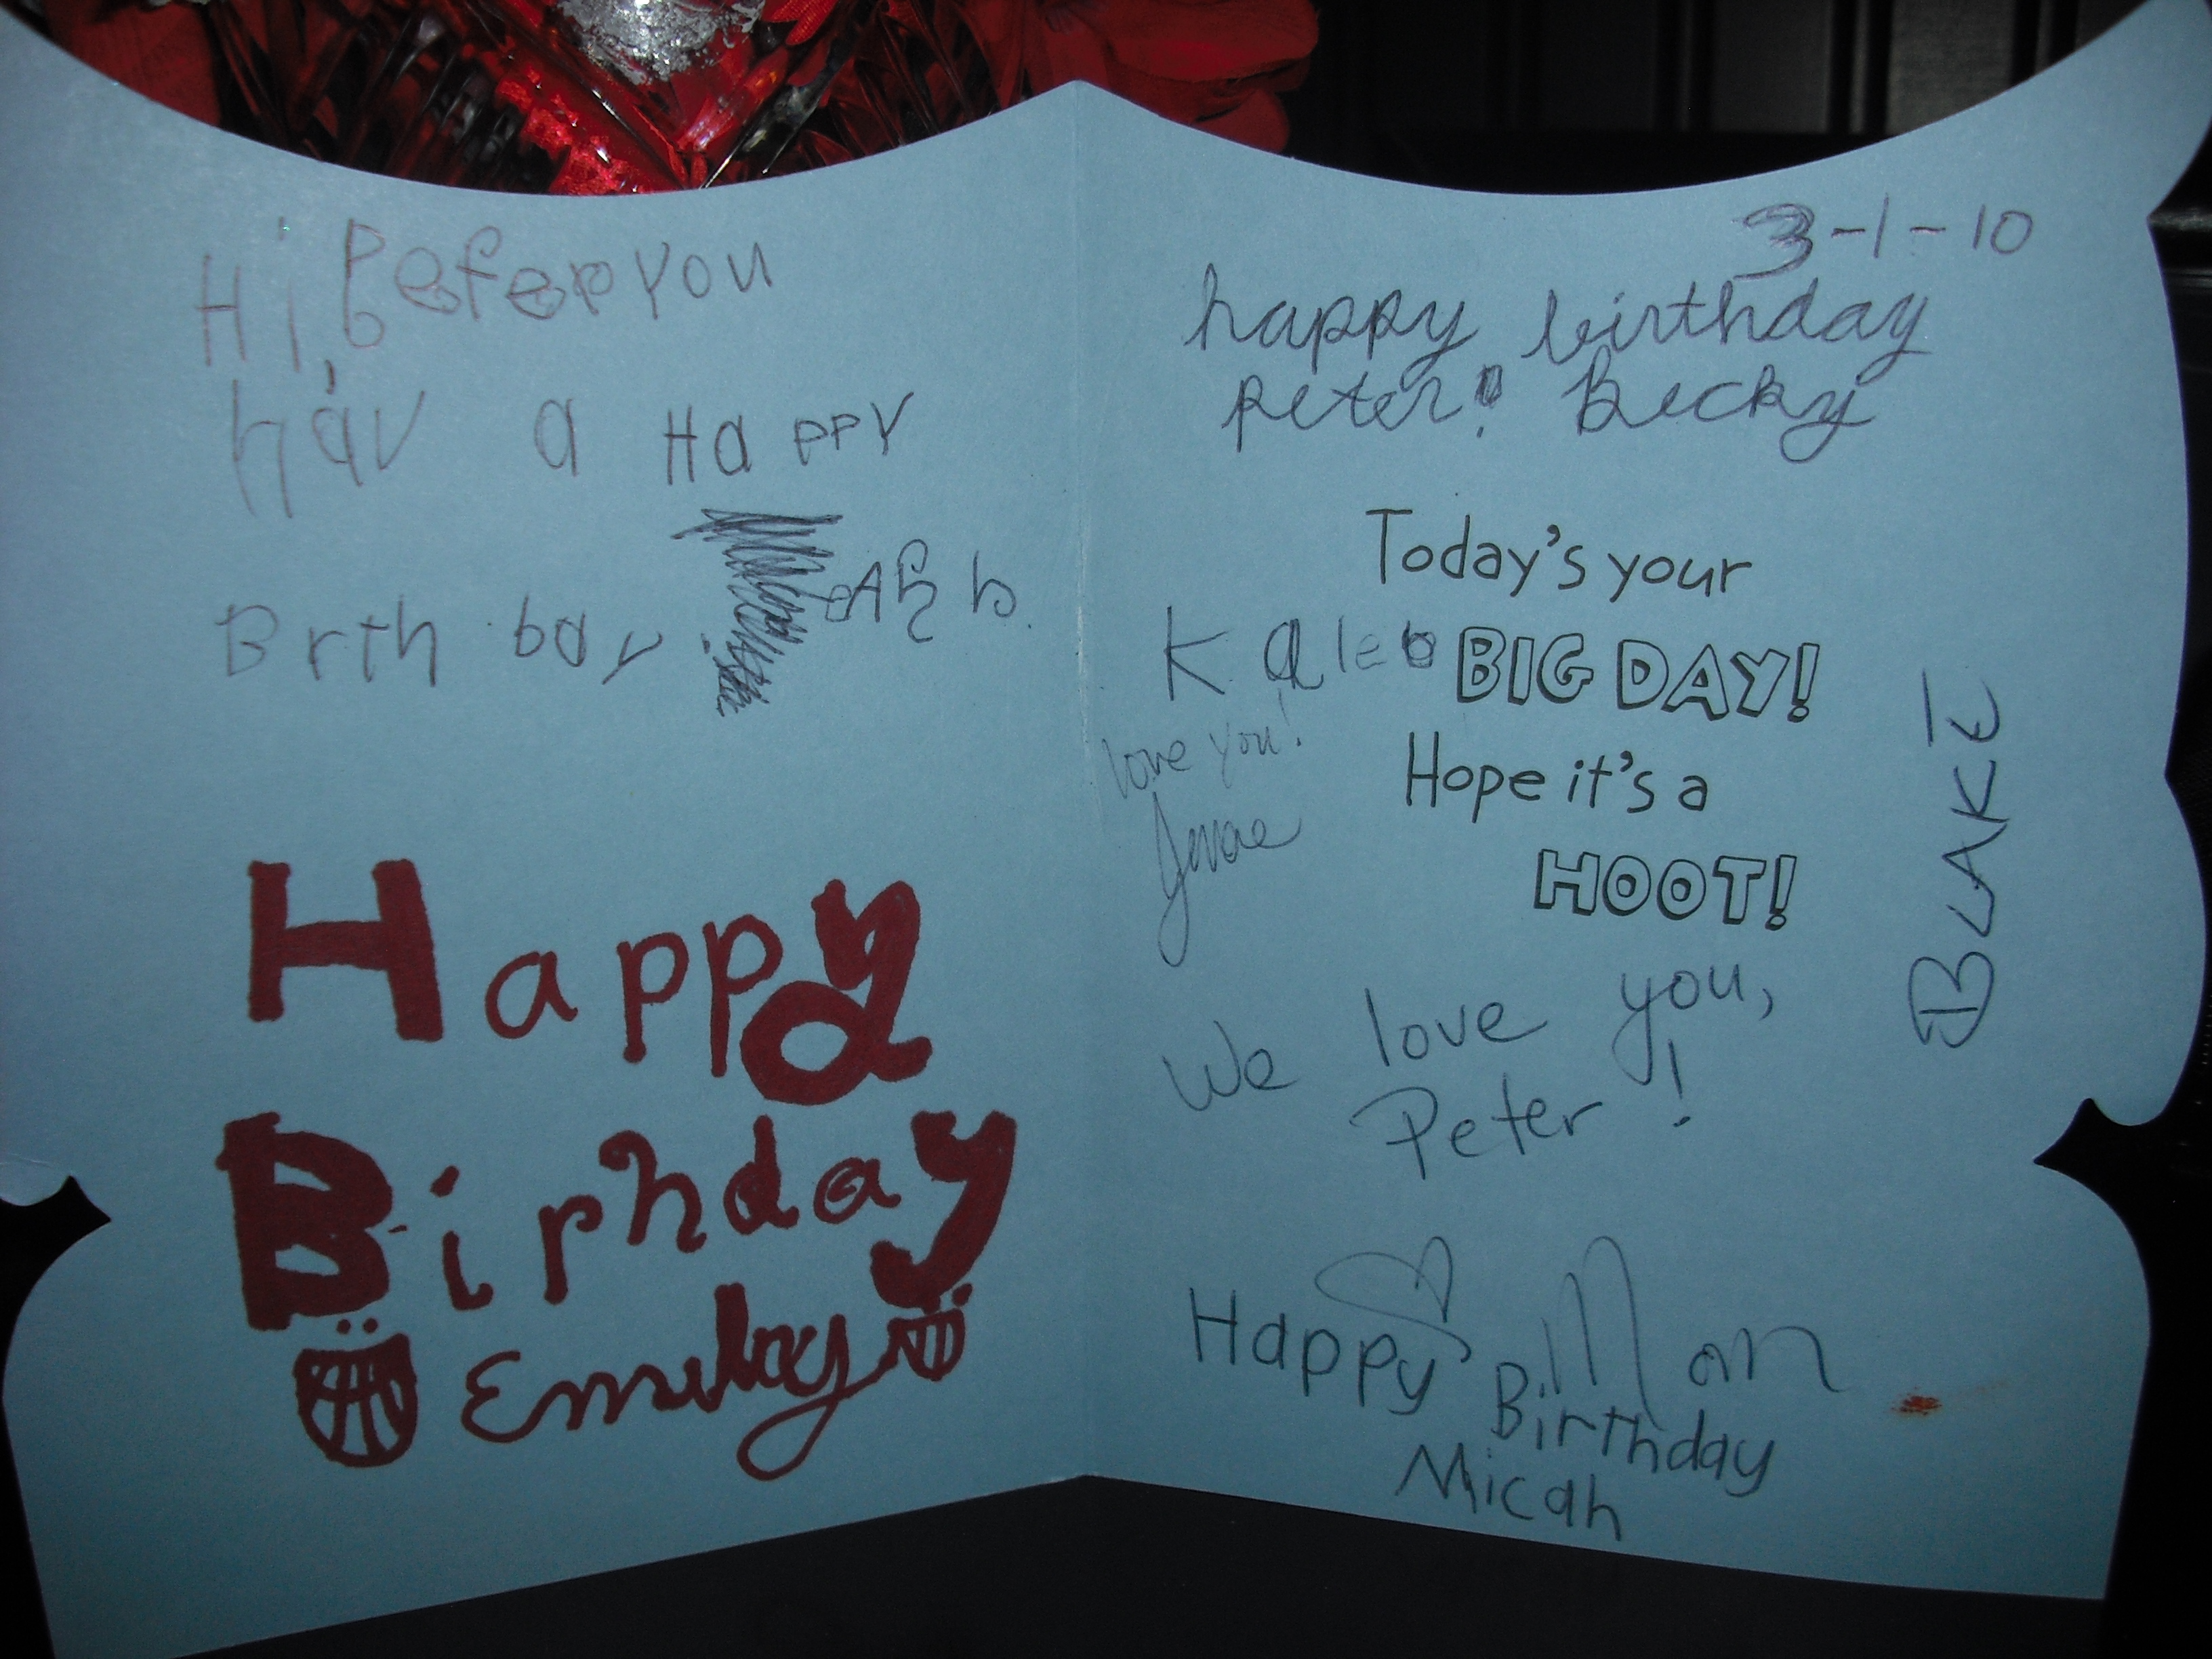 Hi, Peter you
hav a Happy
Brth bay
Happy
Birhday
Emily
3-1-10
happy birthday
peter! Becky
Today's your
Kaleb BIG DAY!
love you!
Hope it's a
HOOT!
BLAKE
We love you,
Peter!
Mom
Happy Birthday
Micah